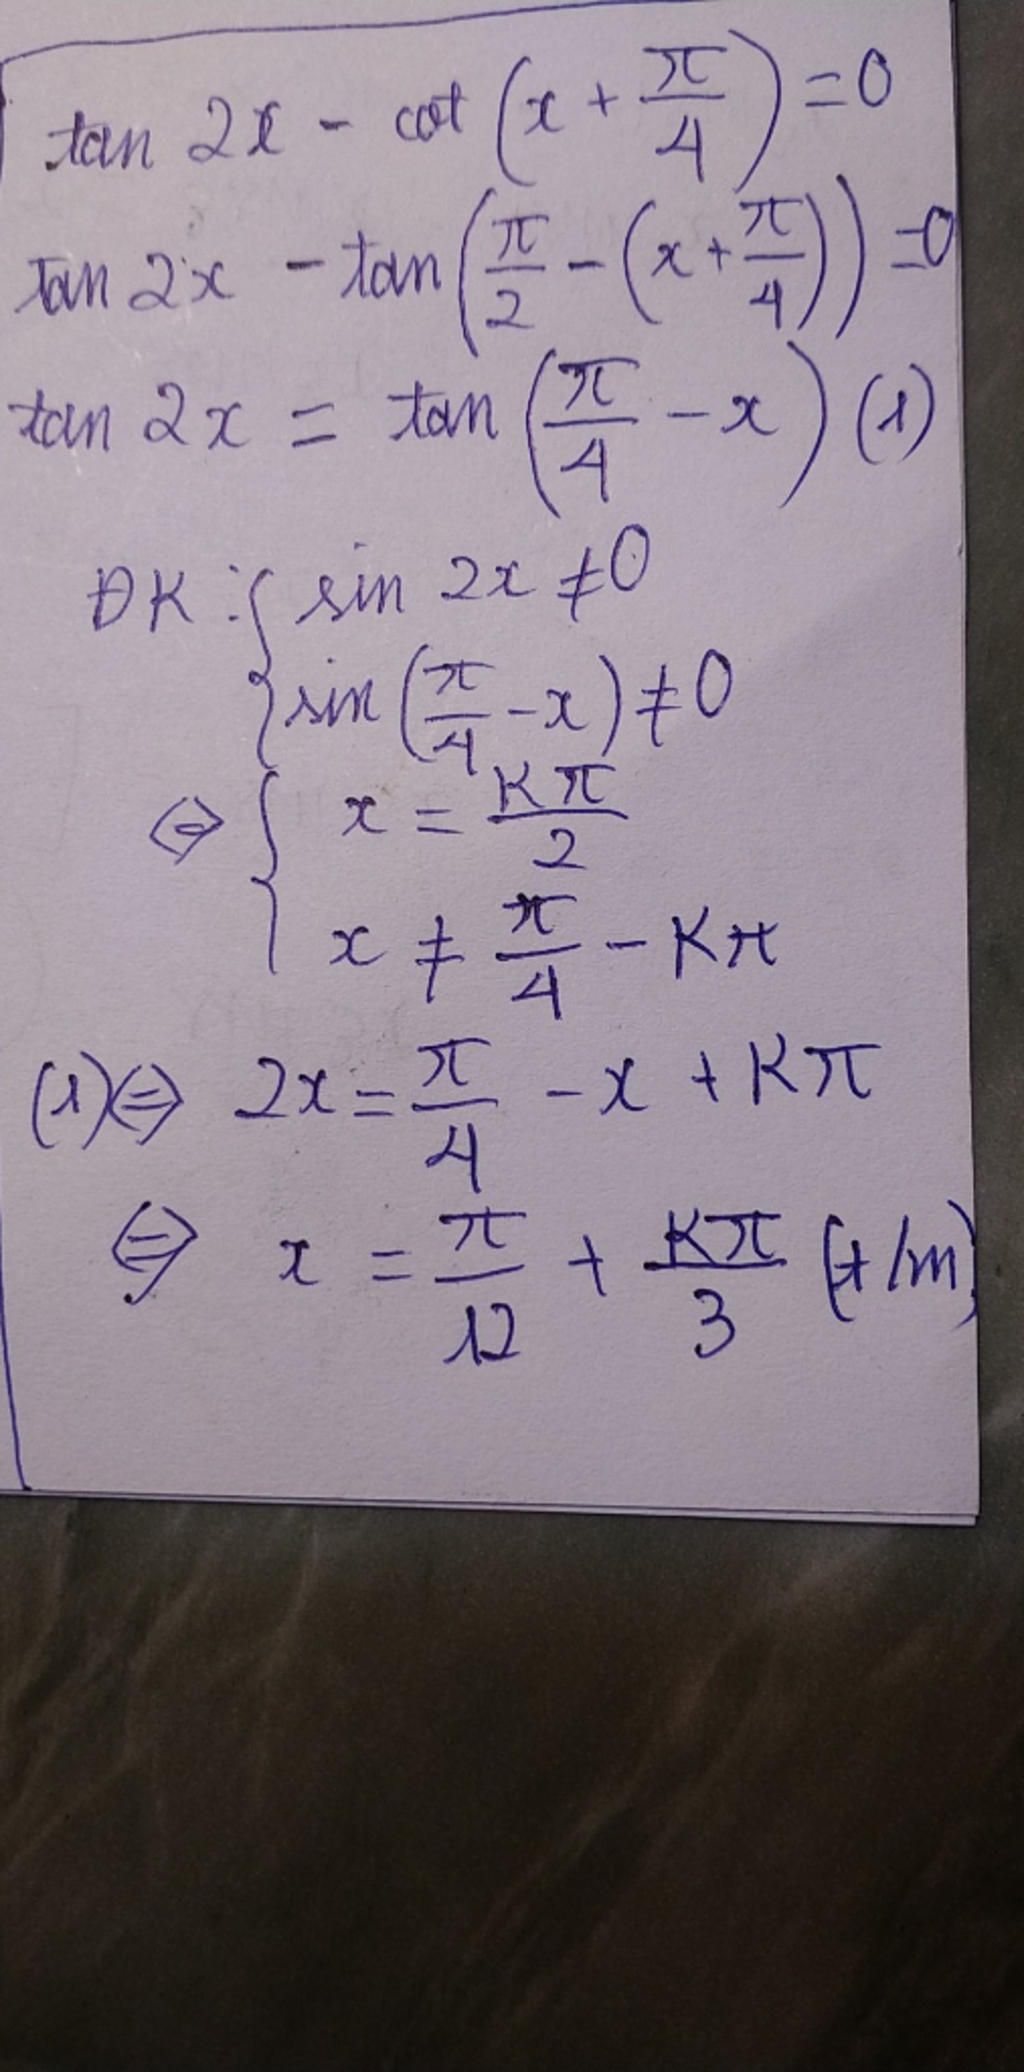 tan 2x - cot (x + π/4) = 0
tan 2x - tan (π/2 - (x + π/4)) = 0
tan 2x = tan (π/4 - x) (1)
ĐK : { sin 2x ≠ 0
sin (π/4 - x) ≠ 0
⇔ { x = Kπ/2
x ≠ π/4 - Kπ
(1) ⇔ 2x = π/4 - x + Kπ
⇔ x = π/12 + Kπ/3 (t/m)